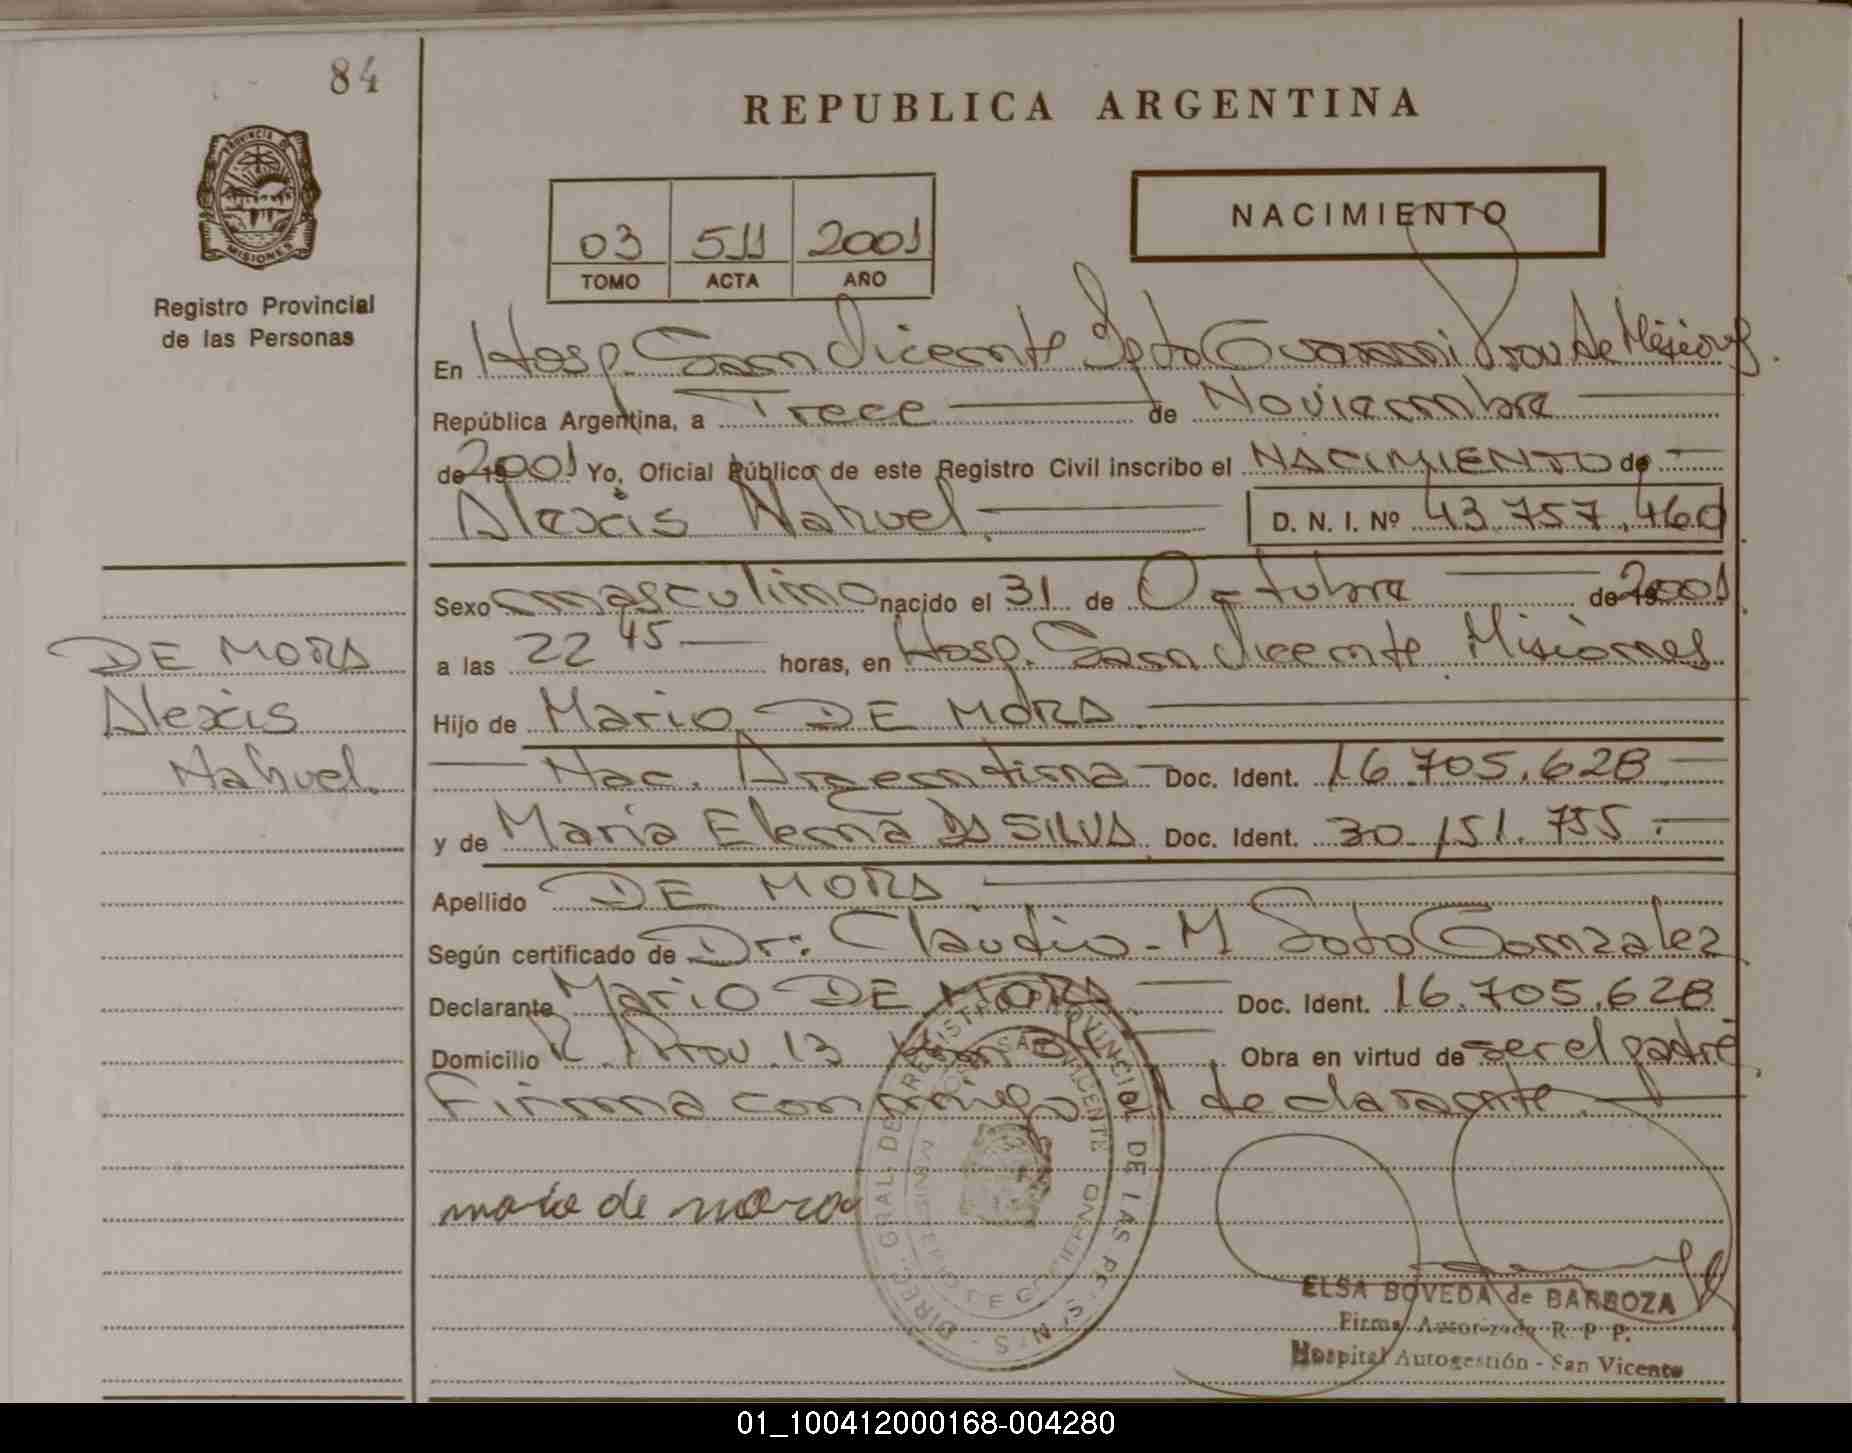 84
REPUBLICA ARGENTINA
PROVINCIA DE
MISIONES
Registro Provincial
de las Personas
03 511 2001
TOMO ACTA AÑO
NACIMIENTO
En Hosp. San Vicente Dpto Guarani Prov de Misiones.
República Argentina, a Trece de Noviembre
de 2001 Yo, Oficial Público de este Registro Civil inscribo el NACIMIENTO de
Alexis Nahuel D. N. I. Nº 43.757.460
Sexo masculino nacido el 31 de Octubre de 2001
a las 22 45 horas, en Hosp. San Vicente Misiones
Hijo de Mario DE MORA
Nac. Argentina Doc. Ident. 16.705.628
y de Maria Elena DA SILVA Doc. Ident. 30.151.755
Apellido DE MORA
Según certificado de Dr: Claudio M Soto Gonzalez
Declarante Mario DE MORA Doc. Ident. 16.705.628
Domicilio R. Prov. 13 Obra en virtud de ser el padre
Firma conmigo el declarante.
DE MORA
Alexis
Nahuel.
mario de mora
DIREC. GRAL. DE REGISTRO PROVINCIAL DE LAS PERS.
SAN VICENTE
ELSA BOVEDA de BARBOZA
Firma Autorizada R. P. P.
Hospital Autogestión - San Vicente
01_100412000168-004280